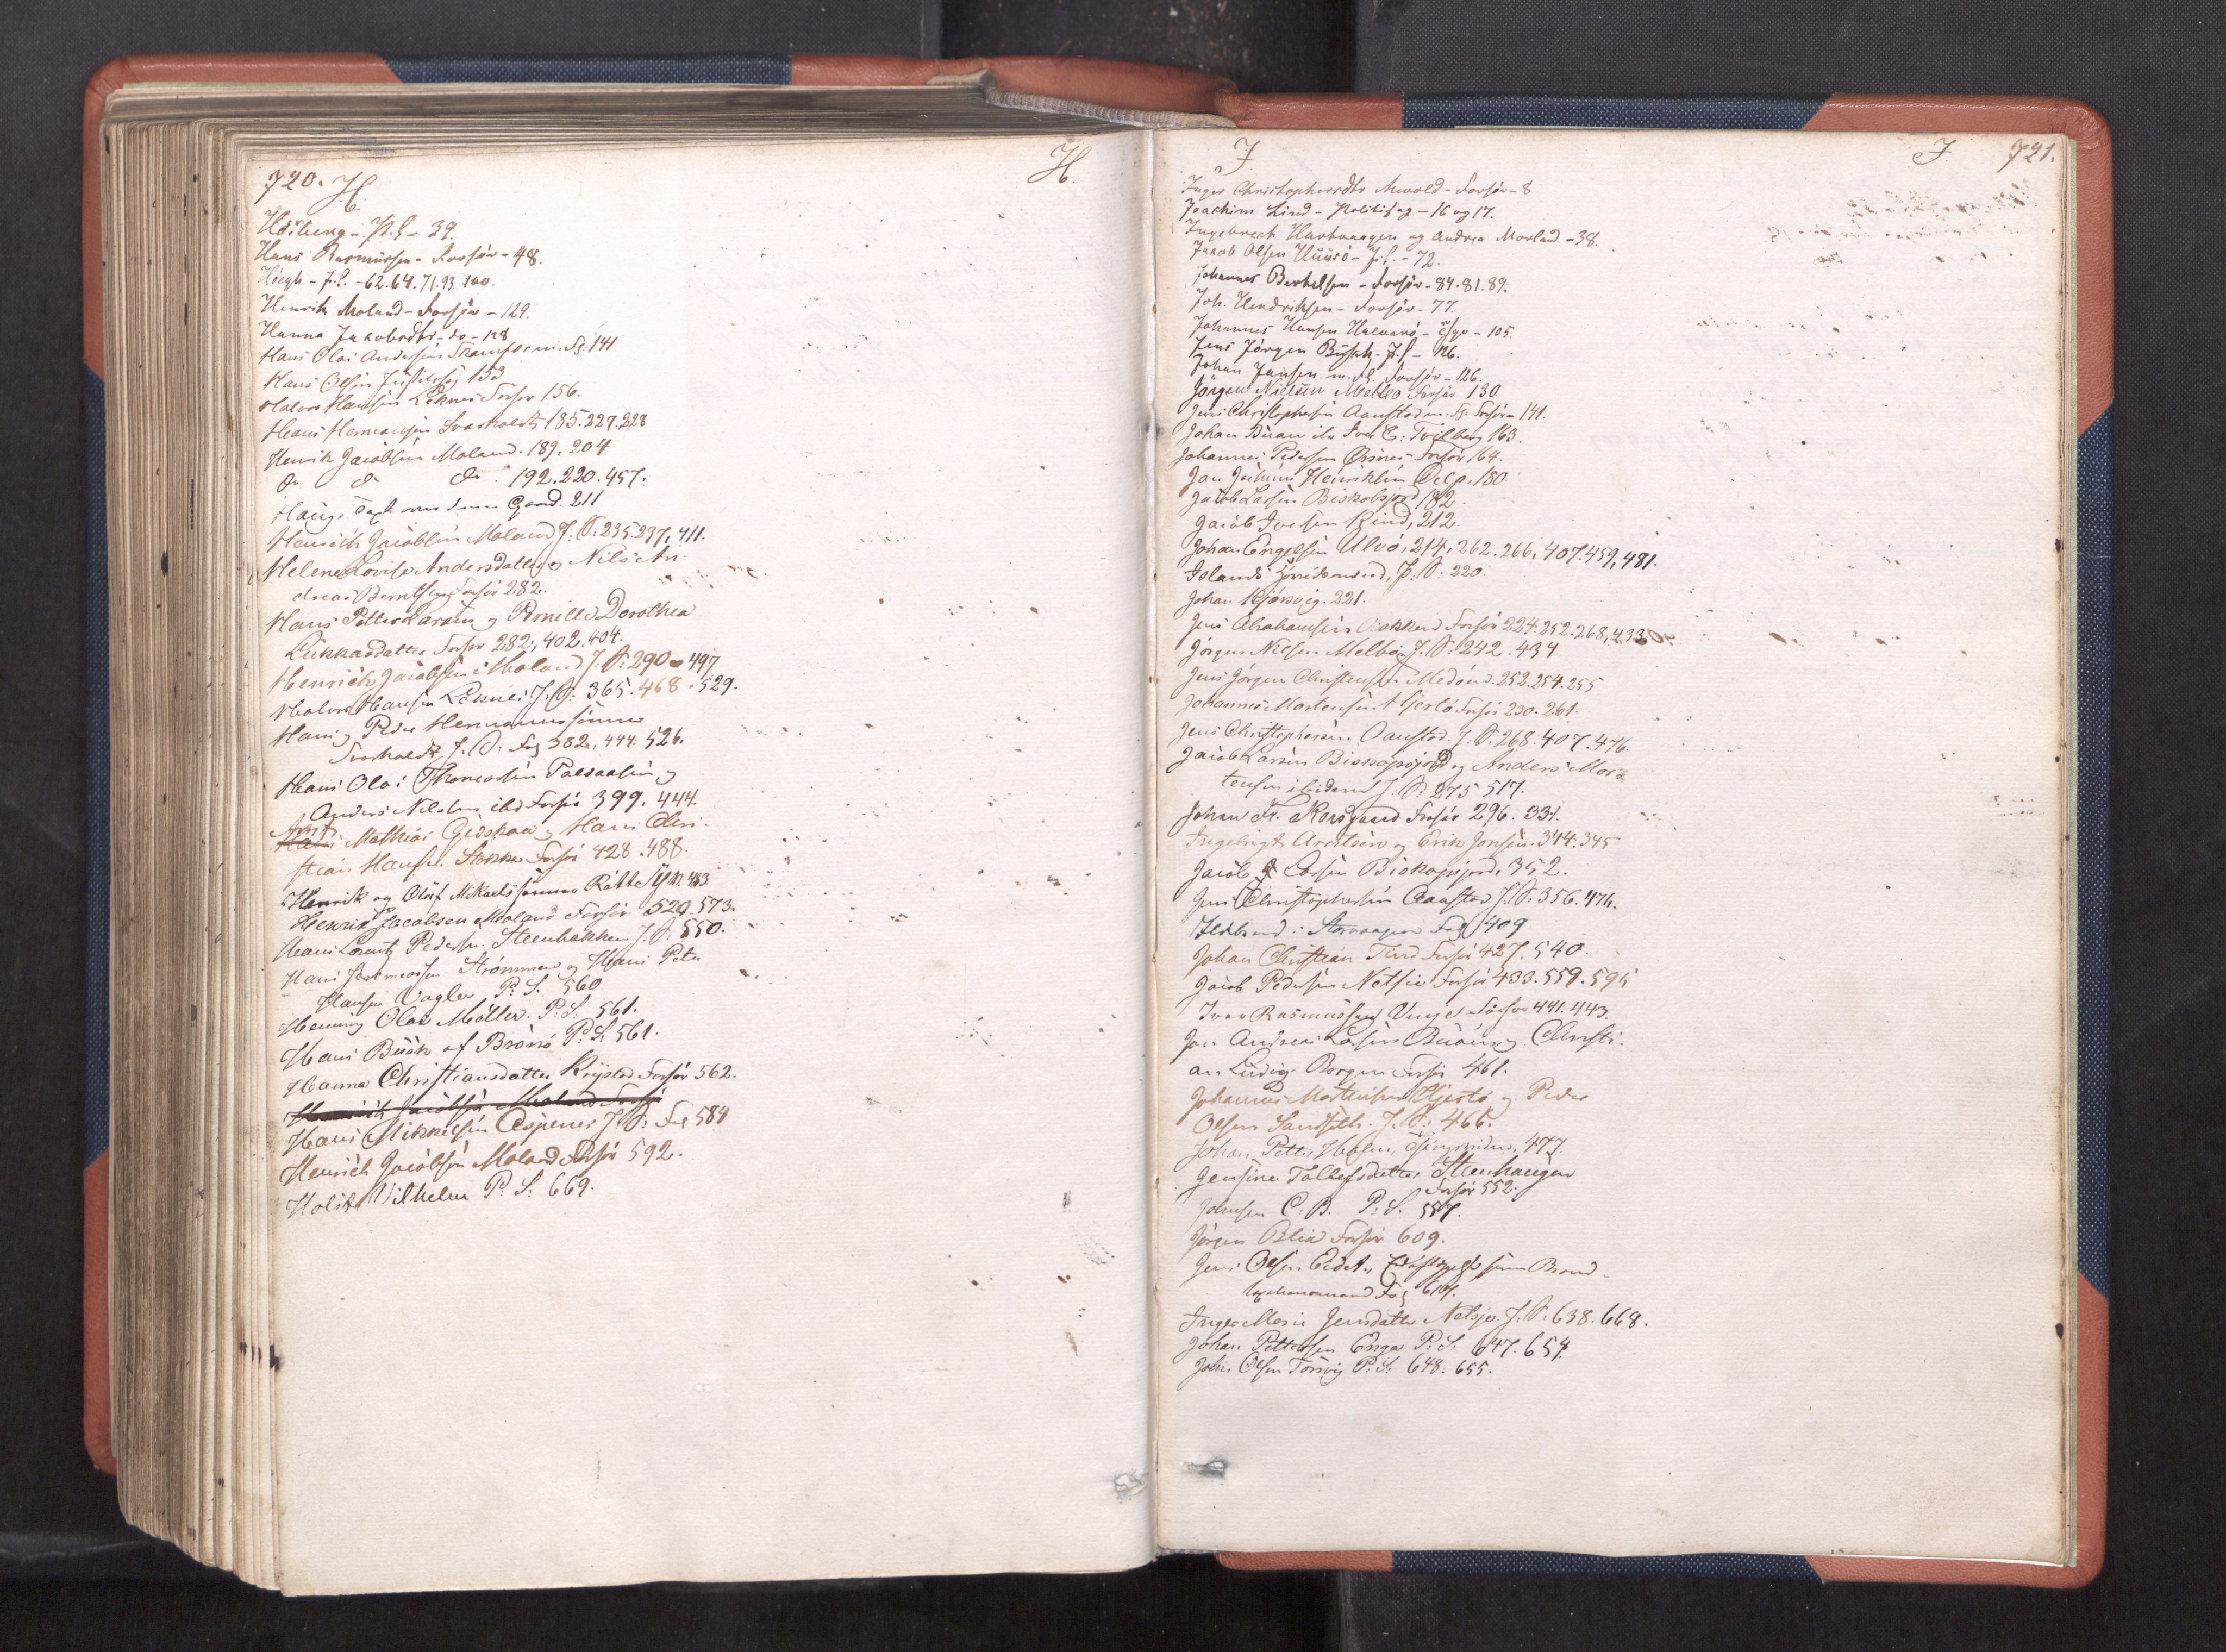 720. H. H.
Hans Rasmussen - Forhør - 48.
Høegh - P.S. - 62. 64. 71. 93. 100.
Henrik Moland - Forhør - 129.
Hanna Jakobsdtr - do - 128
Hans Olai Andersen m. Fl. 141
Hans Olsen Justitssag 153
Halvor Hansen Leknes Forhør 156.
Hans Hermansen Svarholdt 185. 227. 228
Henrik Jacobsen Moland. 189. 204
do do do. 192. 220. 457.
Haug, 211
Henrich Jacobsen Moland J: S. 235. 237, 411.
Helene Lovise Andersdatter og Nils An-
dreas Berntsen Forhør 282.
Hans Petter Larsen og Pernille Dorothea
Lukkasdatter Forhør 282, 402. 404.
Henrich Jacobsen Moland J: S: 290 - 497
Halvor Hansen Leknes J. S: 365. 468. 529.
Hans og Peder Hermannssønner
Svarholdt J. S: Fol 382, 444. 526.
Hans Olai Thomassen og
Anders Nilsen ibd Forhør 399. 444.
Mathias Gidskou og Hans Chri-
stian Hansen Stokke Forhør 428. 488.
Henrik og Oluf Mikaelssønner Røtte 483
Henrik Jacobsen Moland Forhør 529. 573.
Hans Lorentz Pedersen Steenbakken J. S: 550.
Hans Strømmen og Hans Peter
Hansen Vagler P. S. 560
Henning Olai Møller P. S. 561.
Hans Busk af Brønø P. S. 561.
Hanna Christiansdatter Forhør 562.
Henrik Jacobsen Moland Forhør
Hans Mikkelsen Espenes J. S: Fol 584
Henrich Jacobsen Moland Forhør 592.
Holst Vilhelm P. S. 669.
J. J. 721.
Inger Christophersdtr - Forhør - 8
Joachim Lind - Politisag - 16 og 17.
Ingebregt Hartvaagen og Andrea Morland - 38.
Jakob Olsen - J.S. - 72.
Johannes Berthelsen - Forhør - 84. 81. 89.
Joh. Hendriksen - Forhør - 77.
Johannes Hansen - 105
Jens Jörgen Busch - P.S - 126.
Johan Jansen m. Fl. Forhør - 126.
Jörgen Nielsen Melbo Forhør 130
Jens Christophersen Aanstad m. Fl. Forhør - 141.
Johan Buan 163.
Johannes Pedersen Øxnes Forhør 164.
Jan Jochum Henriksen 180
Jacob Larsen Biskobsjord 182.
Jacob Iversen Rind, 212.
Johan Engelsen Ulvö, 214, 262. 266, 407. 459, 481.
P. S: 220.
Johan Kjørsvig. 221.
Jens Abrahamsen Bakken Forhør 224. 252. 268, 433
Jörgen Nilsen Melbo J. S: 242. 434
Jens Jörgen Christensen 252. 254. 255
Johannes Mortensen Hjertø Forhør 230. 261.
Jens Christophersen Aanstad. J. S. 268. 407. 476.
Jacob Larsen Biskopsjord og Anders Mor-
tensen ibidem J. S: 275 517.
Johan Fr. Korsgaard Forhør 296. 331.
Ingebrigt og Erik Jonsen. 344. 345
Jacob Larsen Biskopsjord, 352.
Jens Christophersen Aanstad J. S: 356. 476.
Ildebrand i Storvaagen Fol 409
Johan Christian Tind Forhør 427. 540.
Jacob Pedersen Netsje Forhør 433. 559. 595
Ivar Rasmussen Vinje Forhør 441. 443.
Jan Andreas Larsen Buan og Christi-
an Ludvig Borgen Forhør 461.
Johannes Mortensen Hjertø og Peder
Olsen Sandseth. J. S: 466.
Johan Petter Holm, 477.
Jensine Tollefsdatter Steenhaugen
Forhør 552.
Johnsen C. B. P. S. 557.
Jørgen Blix Forhør 609.
Jens Olsen Eidet,
Fol
Inger Marie Jensdatter Netsje J. S. 638. 668.
Johan Pettersen Enga P. S: 647. 654.
John Olsen Torsvig P. S: 648. 655.